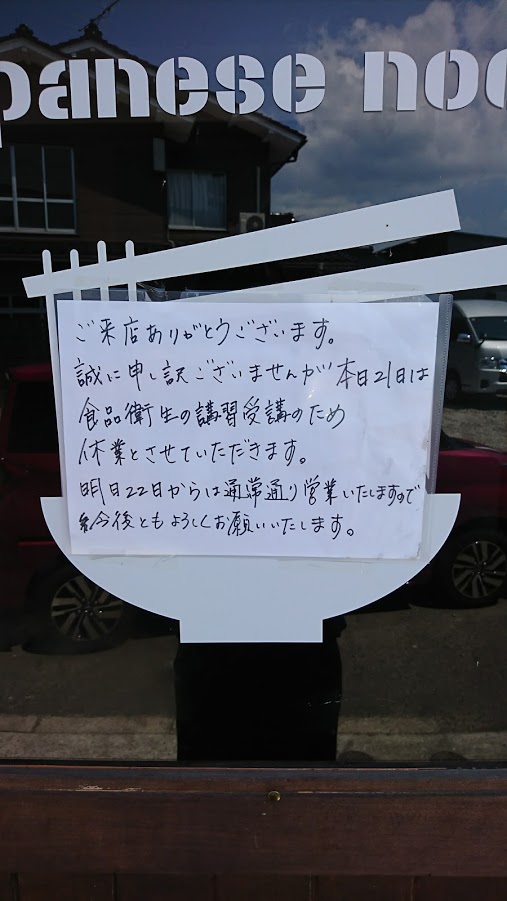 panese noo
ご来店ありがとうございます。
誠に申し訳ございませんが本日21日は
食品衛生の講習受講のため
休業とさせていただきます。
明日22日からは通常通り営業いたしますので
今後ともよろしくお願いいたします。